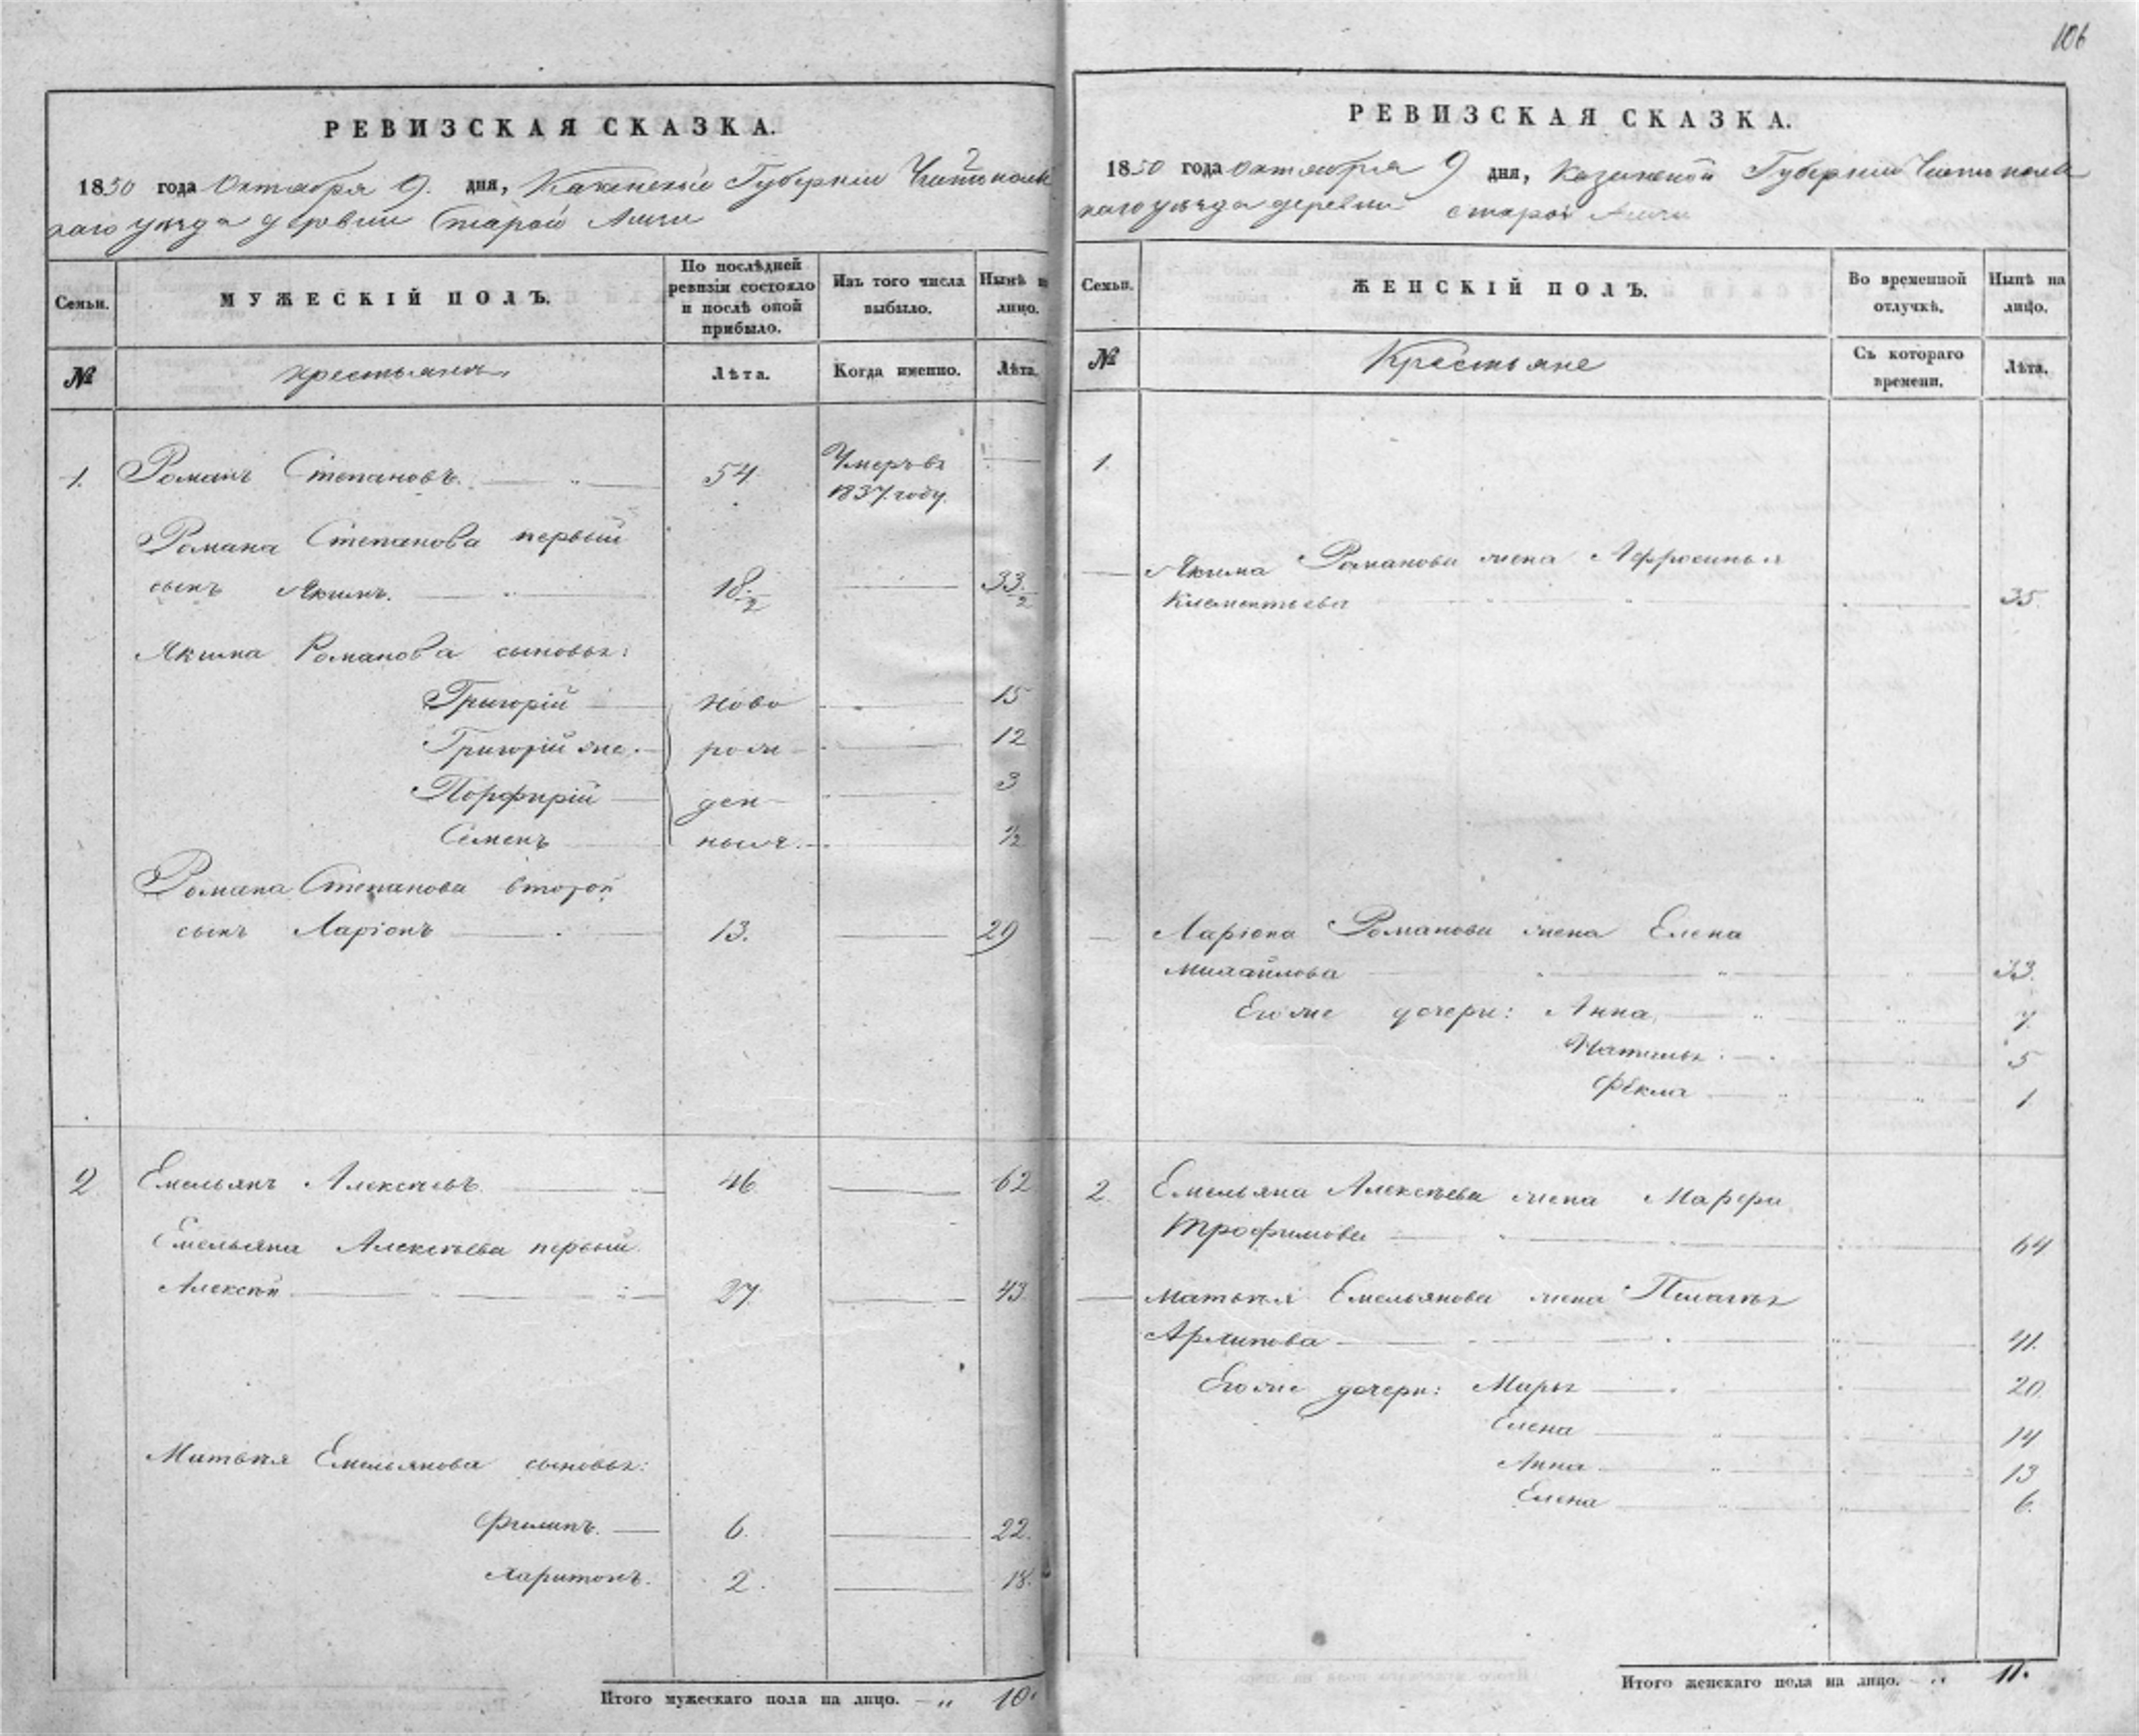 106
РЕВИЗСКАЯ СКАЗКА.
2
1850 года Октября 9. дня, Казанской Губерніи Чистополь
скаго уѣзда деревни Старой Амзи
Семьи.
МУЖЕСКІЙ ПОЛЪ.
По послѣдней ревизіи состояло и послѣ оной прибыло.
Изъ того числа выбыло.
Нынѣ на лицо.
№
крестьянъ
Лѣта.
Когда именно.
Лѣта.
1. Романъ Степановъ. 54. Умеръ въ
1837. году.
Романа Степанова первый
сынъ Якимъ. 18 1/2 33 1/2
Якима Романова сыновья:
Григорій ново 15
Григорій же. рож 12
Порфирій ден 3
Семенъ ныя. 1/2
Романа Степанова второй
сынъ Ларіонъ 13. 29
2 Емельянъ Алексѣевъ 46 62
Емельяна Алексѣева первый
Алексѣй 27. 43
Матвѣя Емельянова сыновья:
Филипъ. 6. 22.
Харитонъ. 2. 18.
Итого мужескаго пола на лицо. 10.
РЕВИЗСКАЯ СКАЗКА.
1850 года октября 9 дня, Казанской Губерніи Чистополь
скаго уѣзда деревни старой Амзи
Семьи.
ЖЕНСКІЙ ПОЛЪ.
Во временной отлучкѣ.
Нынѣ на лицо.
№
Крестьяне
Съ котораго времени.
Лѣта.
1.
Якима Романова жена Афросинья
Клементьева 35
Ларіона Романова жена Елена
Михайлова 33.
Его же дочери: Анна 7.
Наталья 5
Фекла 1
2. Емельяна Алексѣева жена Марфа
Трофимова 64
Матвѣя Емельянова жена Пелагѣя
Архипова 41.
Его же дочери: Марья 20.
Елена 14
Анна 13
Елена 6.
Итого женскаго пола на лицо. 11.